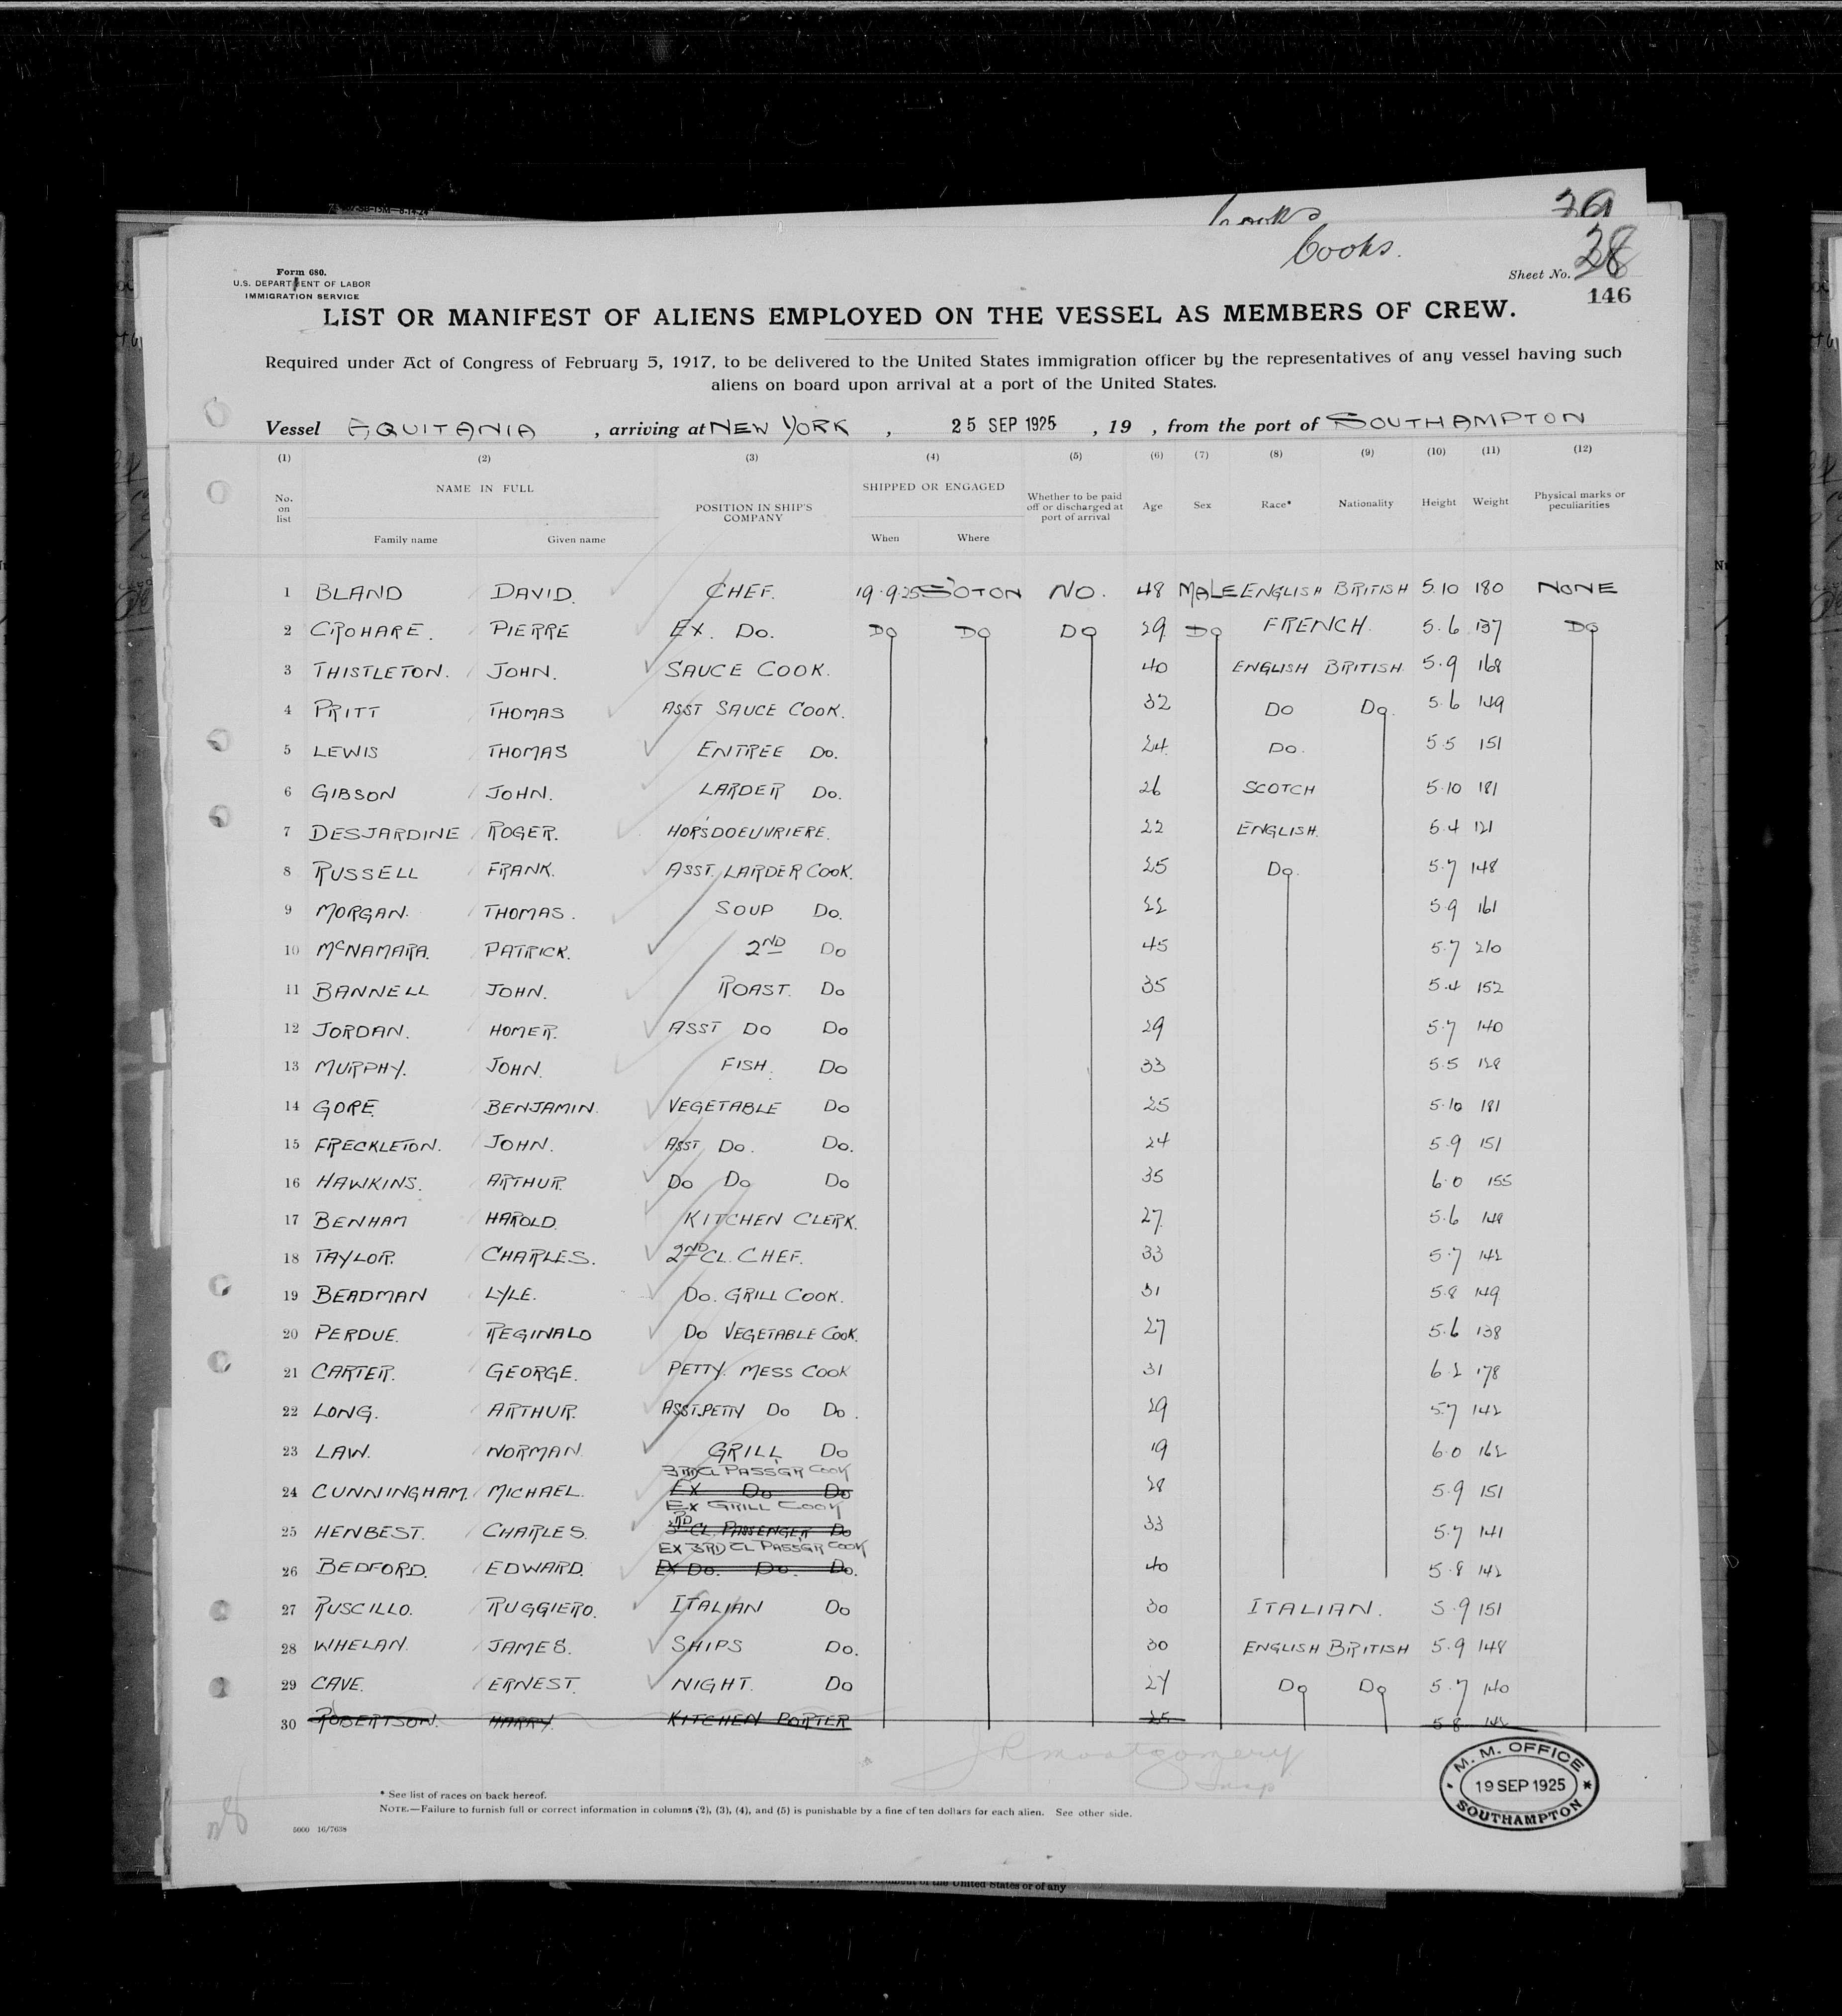 Cooks
29
Cooks.
28
Form 680.
U.S. DEPARTMENT OF LABOR
IMMIGRATION SERVICE
Sheet No.
146
LIST OR MANIFEST OF ALIENS EMPLOYED ON THE VESSEL AS MEMBERS OF CREW.
Required under Act of Congress of February 5, 1917, to be delivered to the United States immigration officer by the representatives of any vessel having such
aliens on board upon arrival at a port of the United States.
Vessel AQUITANIA , arriving at NEW YORK , 25 SEP 1925 , 19 , from the port of SOUTHAMPTON
(1) (2) (3) (4) (5) (6) (7) (8) (9) (10) (11) (12)
No. on list NAME IN FULL Family name Given name POSITION IN SHIP'S COMPANY SHIPPED OR ENGAGED When Where Whether to be paid off or discharged at port of arrival Age Sex Race* Nationality Height Weight Physical marks or peculiarities
1 BLAND DAVID. CHEF. 19.9.25 S'OTON NO. 48 MALE ENGLISH BRITISH 5.10 180 NONE
2 CROHARE. PIERRE EX. DO. DO DO DO 29 DO FRENCH. 5.6 137 DO
3 THISTLETON. JOHN. SAUCE COOK. 40 ENGLISH BRITISH. 5.9 168
4 PRITT THOMAS ASST SAUCE COOK. 32 DO DO. 5.6 149
5 LEWIS THOMAS ENTREE DO. 24 DO. 5.5 151
6 GIBSON JOHN. LARDER DO. 26 SCOTCH 5.10 181
7 DESJARDINE ROGER. HORS'DOEUVRIERE. 22 ENGLISH. 5.4 121
8 RUSSELL FRANK. ASST. LARDER COOK. 25 DO. 5.7 148
9 MORGAN. THOMAS. SOUP DO. 22 5.9 161
10 McNAMARA. PATRICK. 2ND DO 45 5.7 210
11 BANNELL JOHN. ROAST. DO 35 5.4 152
12 JORDAN. HOMER. ASST DO DO 29 5.7 140
13 MURPHY. JOHN. FISH. DO 33 5.5 128
14 GORE BENJAMIN. VEGETABLE DO 25 5.10 181
15 FRECKLETON. JOHN. ASST DO. DO. 24 5.9 151
16 HAWKINS. ARTHUR. DO DO DO 35 6.0 155
17 BENHAM HAROLD. KITCHEN CLERK. 27. 5.6 148
18 TAYLOR. CHARLES. 2ND CL. CHEF. 33 5.7 142
19 BEADMAN LYLE. DO. GRILL COOK. 31 5.8 149
20 PERDUE. REGINALD DO VEGETABLE COOK. 27 5.6 138
21 CARTER. GEORGE. PETTY. MESS COOK 31 6.2 178
22 LONG. ARTHUR. ASST. PETTY DO DO. 29 5.7 142
23 LAW. NORMAN. GRILL DO 19 6.0 162
3RD CL PASSGR COOK
24 CUNNINGHAM. MICHAEL. EX DO DO 28 5.9 151
EX GRILL COOK
25 HENBEST. CHARLES. 3RD CL. PASSENGER DO 33 5.7 141
EX 3RD CL PASSGR COOK
26 BEDFORD. EDWARD. EX DO. DO. DO. 40 5.8 142
27 RUSCILLO. RUGGIERO. ITALIAN DO 30 ITALIAN. 5.9 151
28 WHELAN. JAMES. SHIPS DO. 30 ENGLISH BRITISH 5.9 148
29 CAVE. ERNEST. NIGHT. DO 27 DO DO 5.7 140
30 ROBERTSON. HARRY. KITCHEN PORTER 25 5.8 142
JRMontgomery
Insp
M. M. OFFICE
19 SEP 1925
SOUTHAMPTON
* See list of races on back hereof.
NOTE.—Failure to furnish full or correct information in columns (2), (3), (4), and (5) is punishable by a fine of ten dollars for each alien. See other side.
5000 16/7638
of the United States or of any